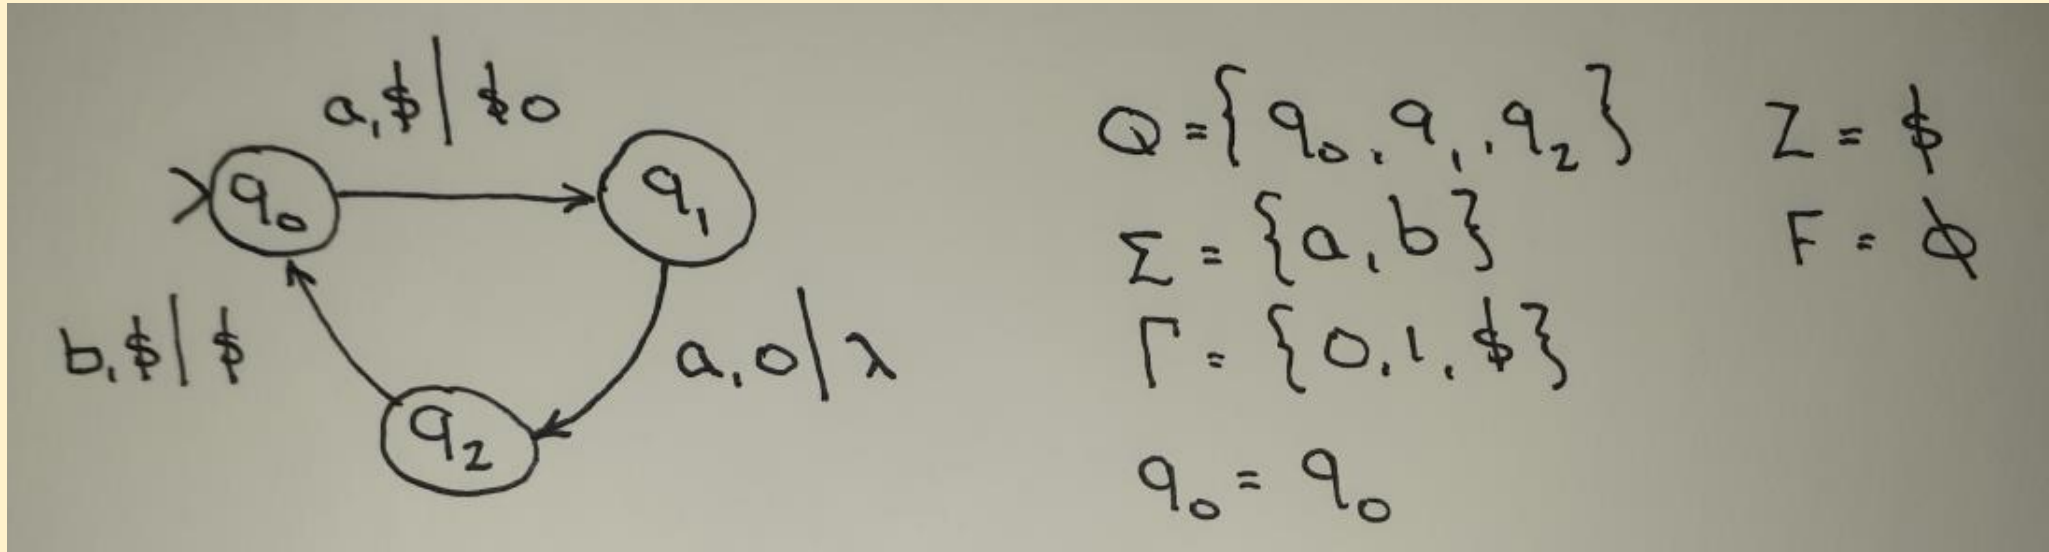 a,$ | $0
q0
q1
b,$ | $
a,0 | λ
q2
Q = { q0, q1, q2 }
Z = $
Σ = {a, b}
F = ϕ
Γ = {0, 1, $}
q0 = q0